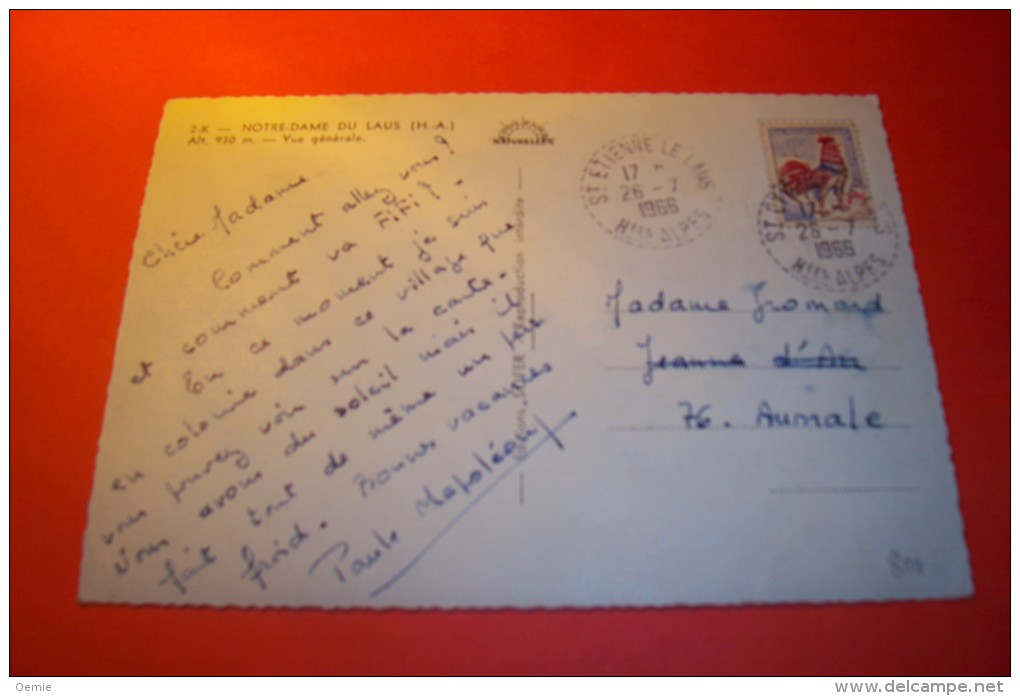 2-K — NOTRE-DAME DU LAUS (H.-A.)
Alt. 930 m. — Vue générale.
NATURELLES
Chère Madame
Comment allez vous?
et comment va FiFi?
En ce moment je suis
en colonie dans ce village que
vous pouvez voir sur la carte.
Nous avons du soleil mais il
fait tout de même un peu
froid. Bonnes vacances
Paule Napoléon
Reproduction interdite
ST ETIENNE LE LAUS
17
26 - 7
1966
Htes ALPES
ST
17
26 - 7
1966
Htes ALPES
Madame Fromard
Jeanne d'Arc
76. Aumale
Oemie
www.delcampe.net